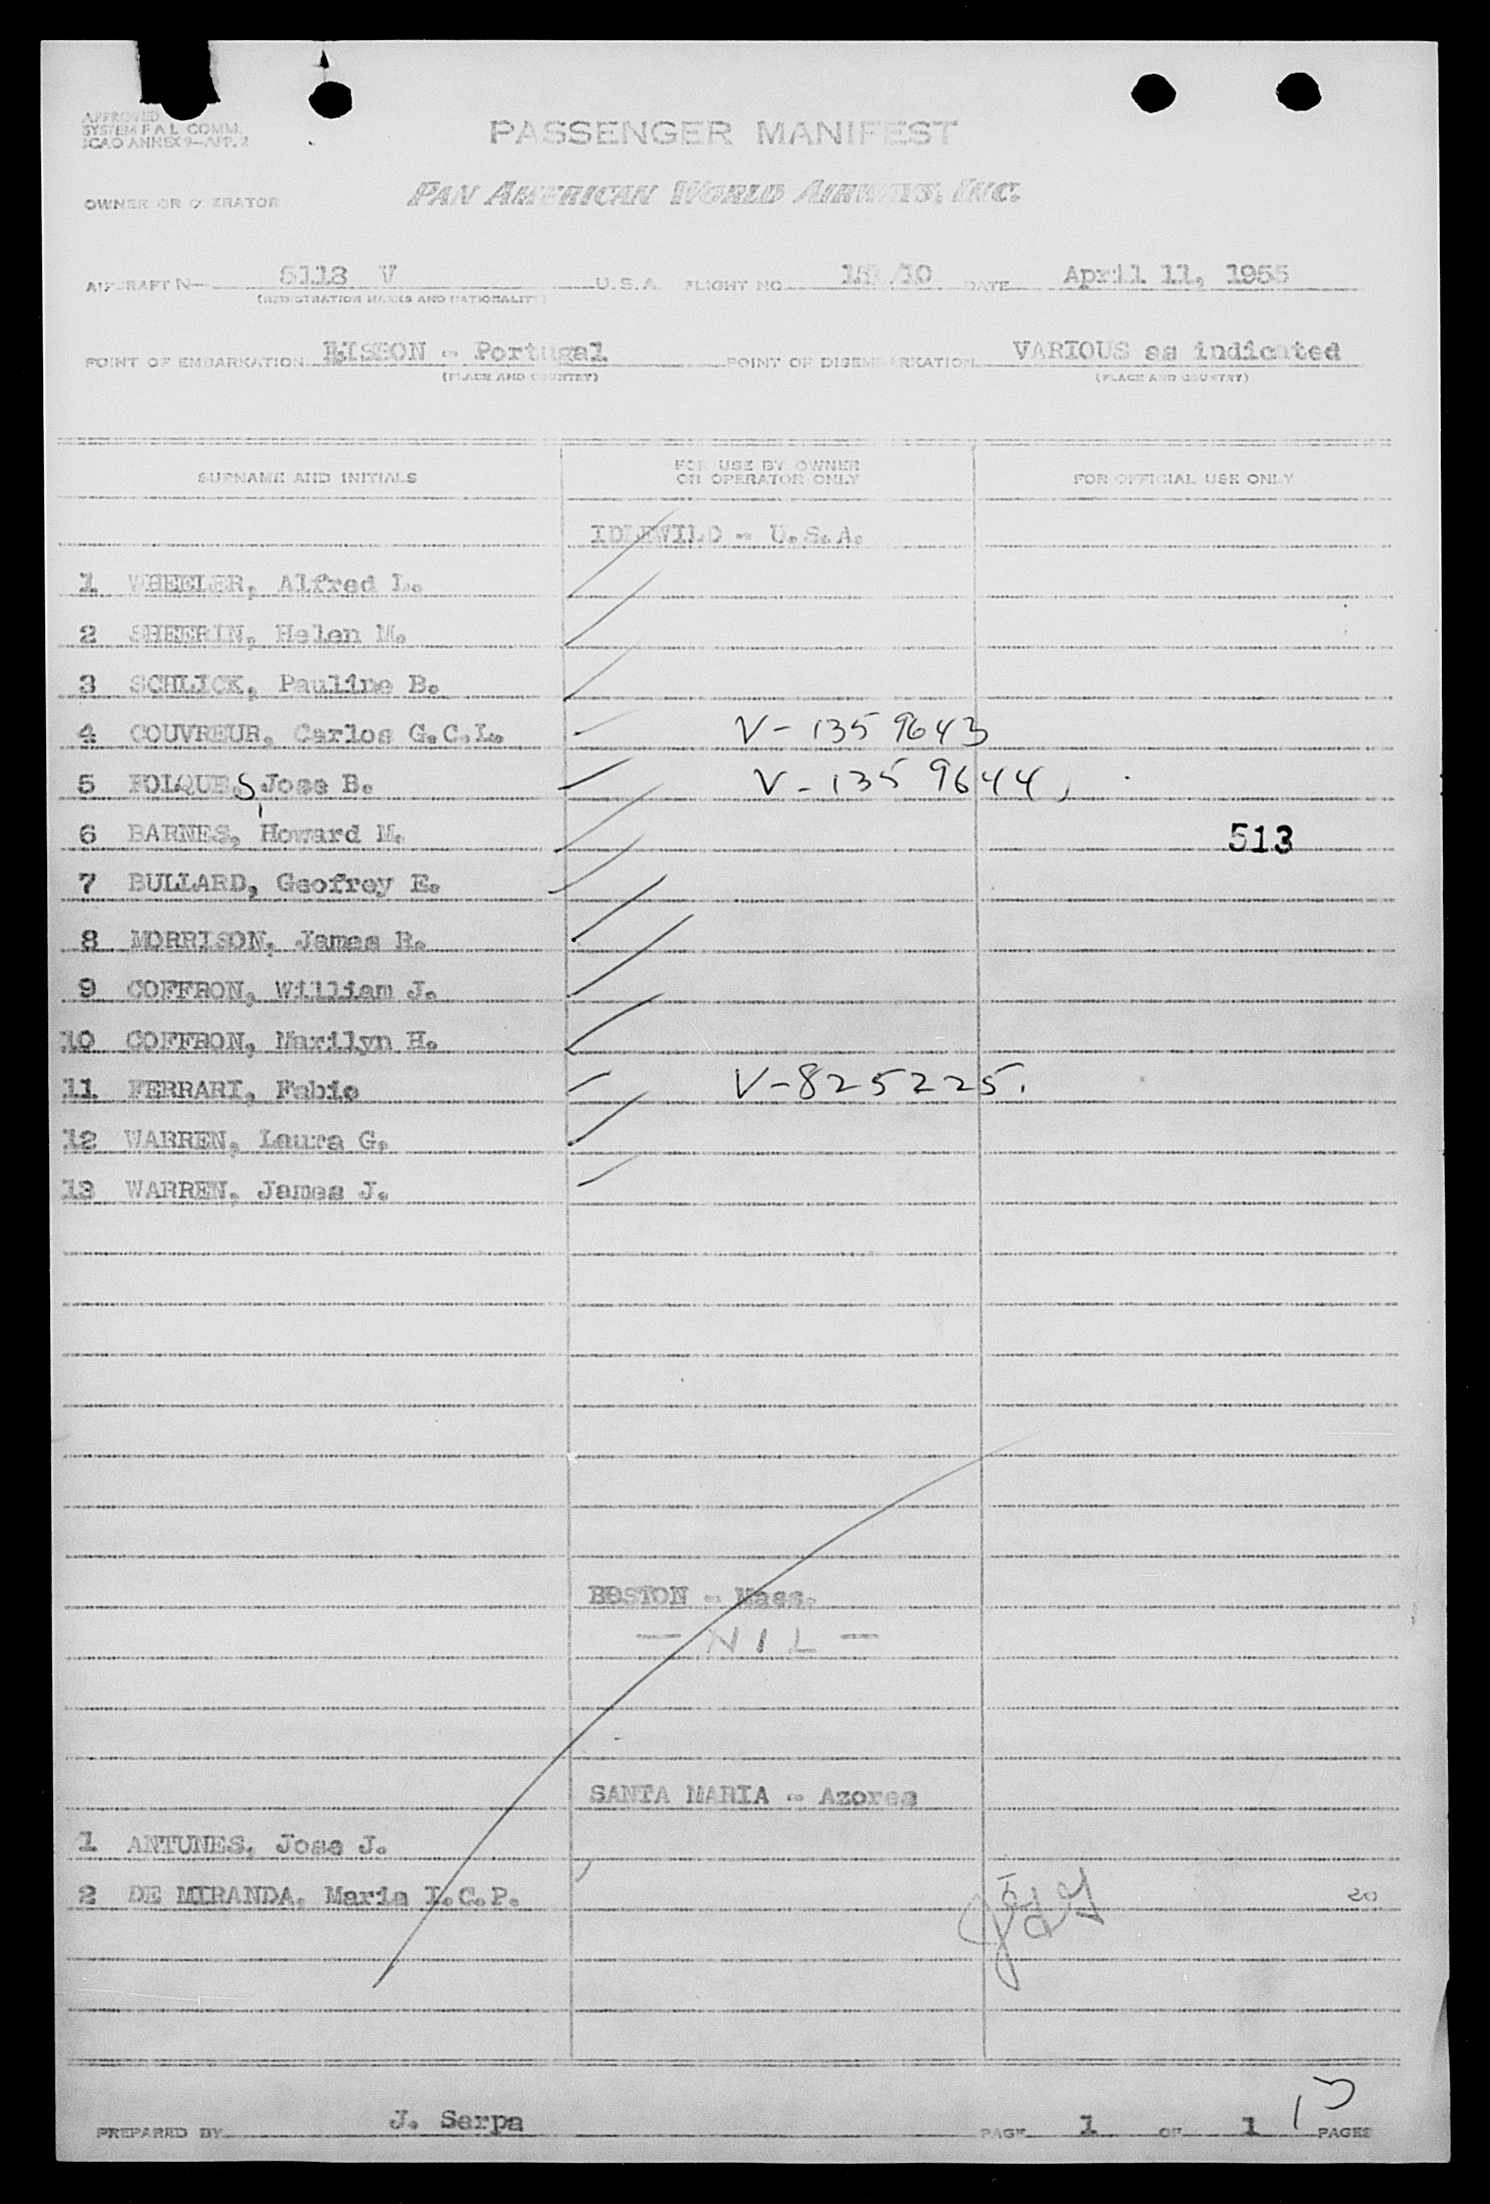 APPROVED
SYSTEM F A L COMM.
ICAO ANNEX 9-APP. 2
PASSENGER MANIFEST
OWNER OR OPERATOR PAN AMERICAN WORLD AIRWAYS, INC.
AIRCRAFT N 5118 V U.S.A. FLIGHT NO /10 DATE April 11, 1955
(REGISTRATION MARKS AND NATIONALITY)
POINT OF EMBARKATION LISBON - Portugal POINT OF DISEMBARKATION VARIOUS as indicated
(PLACE AND COUNTRY) (PLACE AND COUNTRY)
SURNAME AND INITIALS FOR USE BY OWNER OR OPERATOR ONLY FOR OFFICIAL USE ONLY
IDLEWILD - U.S.A.
1 WHEELER, Alfred L.
2 SHEERIN, Helen M.
3 SCHLICK, Pauline B.
4 COUVREUR, Carlos G.C.L. V-1359643
5 FOLQUES, Jose B. V-1359644,
6 BARNES, Howard M. 513
7 BULLARD, Geofrey E.
8 MORRISON, James R.
9 COFFRON, William J.
10 COFFRON, Marilyn H.
11 FERRARI, Fabio V-825225.
12 WARREN, Laura G.
13 WARREN, James J.
BOSTON - Mass.
- NIL -
SANTA MARIA - Azores
1 ANTUNES, Jose J.
2 DE MIRANDA, Maria I.C.P. 20
13
PREPARED BY J. Serpa PAGE 1 OF 1 PAGES